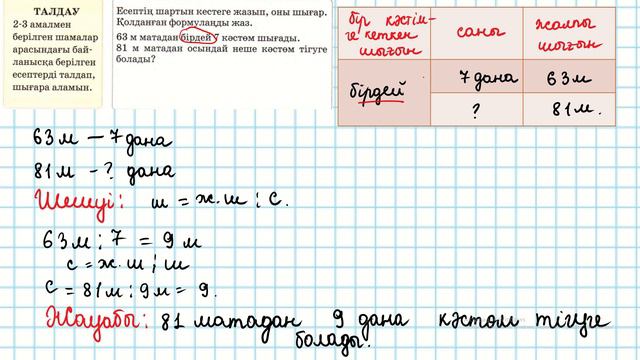 ТАЛДАУ
2-3 амалмен
берілген шамалар
арасындағы бай-
ланысқа берілген
есептерді талдап,
шығара аламын.
Есептің шартын кестеге жазып, оны шығар.
Қолданған формулаңды жаз.
63 м матадан бірдей 7 кәстөм шығады.
81 м матадан осындай неше кәстөм тігуге
болады?
бір кәстім-
ге кеткен
шығын
саны
жалпы
шығын
бірдей
7 дана
63 м
?
81 м.
63 м – 7 дана
81 м - ? дана
Шешуі: ш = ж.ш : с.
63 м : 7 = 9 м
с = ж.ш : ш
с = 81 м : 9 м = 9.
Жауабы: 81 матадан 9 дана кәстөм тігуге
болады.